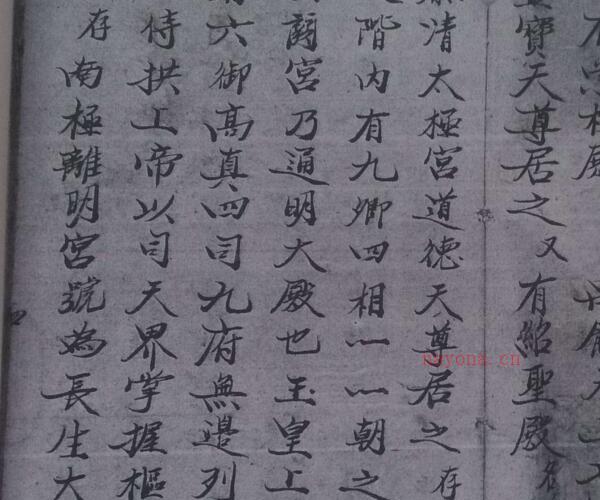 寶天尊居之又有紹聖殿名
清太極宮道德天尊居之存
階內有九卿四相一一朝之
宮乃通明大殿也玉皇上
六御高真四司九府無邊列
侍拱工帝以司天界掌握樞
存南極離明宮號為長生大
四
noyona.cn